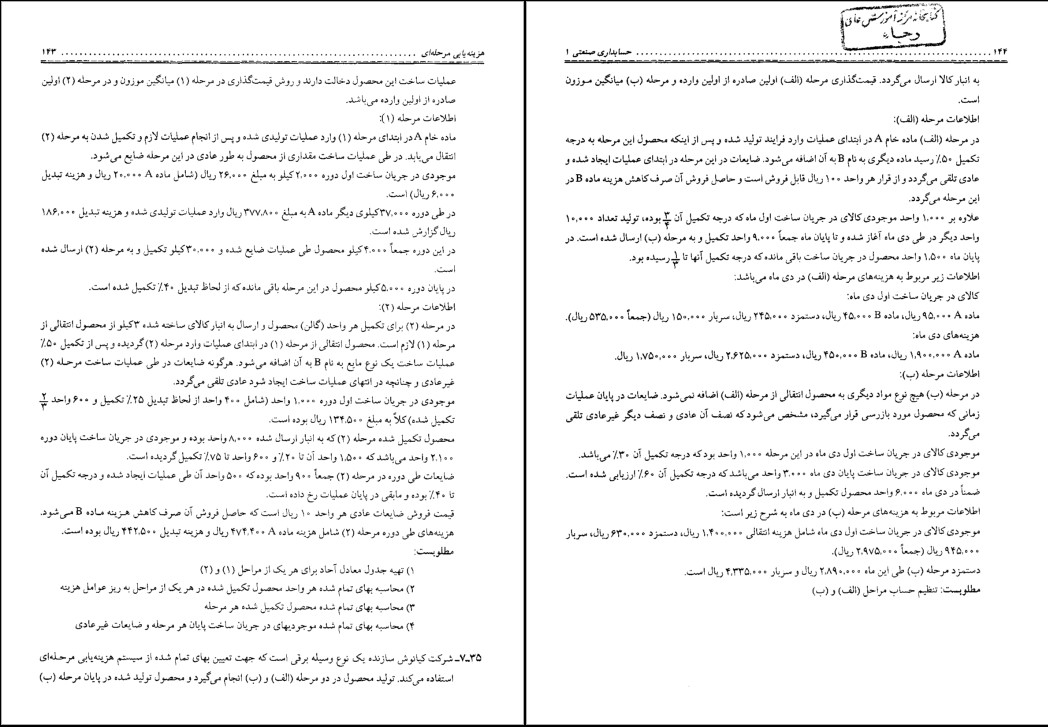 هزینه‌یابی مرحله‌ای ۱۴۳
عملیات ساخت این محصول دخالت دارند و روش قیمت‌گذاری در مرحله (۱) میانگین موزون و در مرحله (۲) اولین
صادره از اولین وارده می‌باشد.
اطلاعات مرحله (۱):
ماده خام A در ابتدای مرحله (۱) وارد عملیات تولیدی شده و پس از انجام عملیات لازم و تکمیل شدن به مرحله (۲)
انتقال می‌یابد. در طی عملیات ساخت مقداری از محصول به طور عادی در این مرحله ضایع می‌شود.
موجودی در جریان ساخت اول دوره ۲٫۰۰۰ کیلو به مبلغ ۲۶٫۰۰۰ ریال (شامل ماده A ۲۰٫۰۰۰ ریال و هزینه تبدیل
۶٫۰۰۰ ریال) است.
در طی دوره ۳۷٫۰۰۰ کیلوی دیگر ماده A به مبلغ ۳۷۷٫۸۰۰ ریال وارد عملیات تولیدی شده و هزینه تبدیل ۱۸۶٫۰۰۰
ریال گزارش شده است.
در این دوره جمعاً ۴٫۰۰۰ کیلو محصول طی عملیات ضایع شده و ۳۰٫۰۰۰ کیلو تکمیل و به مرحله (۲) ارسال شده
است.
در پایان دوره ۵٫۰۰۰ کیلو محصول در این مرحله باقی مانده که از لحاظ تبدیل ۴۰٪ تکمیل شده است.
اطلاعات مرحله (۲):
در مرحله (۲) برای تکمیل هر واحد (گالن) محصول و ارسال به انبار کالای ساخته شده ۳ کیلو از محصول انتقالی از
مرحله (۱) لازم است. محصول انتقالی از مرحله (۱) در ابتدای عملیات وارد مرحله (۲) گردیده و پس از تکمیل ۵۰٪
عملیات ساخت یک نوع مایع به نام B به آن اضافه می‌شود. هرگونه ضایعات در طی عملیات ساخت مرحله (۲)
غیرعادی و چنانچه در انتهای عملیات ساخت ایجاد شود عادی تلقی می‌گردد.
موجودی در جریان ساخت اول دوره ۱٫۰۰۰ واحد (شامل ۴۰۰ واحد از لحاظ تبدیل ۲۵٪ تکمیل و ۶۰۰ واحد ۲/۳
تکمیل شده) کلاً به مبلغ ۱۳۴٫۵۰۰ ریال بوده است.
محصول تکمیل شده مرحله (۲) که به انبار ارسال شده ۸٫۰۰۰ واحد بوده و موجودی در جریان ساخت پایان دوره
۲٫۱۰۰ واحد می‌باشد که ۱٫۵۰۰ واحد آن تا ۲۰٪ و ۶۰۰ واحد تا ۷۵٪ تکمیل گردیده است.
ضایعات طی دوره در مرحله (۲) جمعاً ۹۰۰ واحد بوده که ۵۰۰ واحد آن طی عملیات ایجاد شده و درجه تکمیل آن
تا ۴۰٪ بوده و مابقی در پایان عملیات رخ داده است.
قیمت فروش ضایعات عادی هر واحد ۱۰ ریال است که حاصل فروش آن صرف کاهش هزینه ماده B می‌شود.
هزینه‌های طی دوره مرحله (۲) شامل هزینه ماده A ۴۷۴٫۴۰۰ ریال و هزینه تبدیل ۴۴۲٫۵۰۰ ریال بوده است.
مطلوبست:
۱) تهیه جدول معادل آحاد برای هر یک از مراحل (۱) و (۲)
۲) محاسبه بهای تمام شده هر واحد محصول تکمیل شده در هر یک از مراحل به ریز عوامل هزینه
۳) محاسبه بهای تمام شده محصول تکمیل شده هر مرحله
۴) محاسبه بهای تمام شده موجودیهای در جریان ساخت پایان هر مرحله و ضایعات غیرعادی
۳۵ـ۷ـ شرکت کیانوش سازنده یک نوع وسیله برقی است که جهت تعیین بهای تمام شده از سیستم هزینه‌یابی مرحله‌ای
استفاده می‌کند. تولید محصول در دو مرحله (الف) و (ب) انجام می‌گیرد و محصول تولید شده در پایان مرحله (ب)
کتابخانه مرکز آموزش عالی
رجاء
۱۴۴ حسابداری صنعتی ۱
به انبار کالا ارسال می‌گردد. قیمت‌گذاری مرحله (الف) اولین صادره از اولین وارده و مرحله (ب) میانگین موزون
است.
اطلاعات مرحله (الف):
در مرحله (الف) ماده خام A در ابتدای عملیات وارد فرایند تولید شده و پس از اینکه محصول این مرحله به درجه
تکمیل ۵۰٪ رسید ماده دیگری به نام B به آن اضافه می‌شود. ضایعات در این مرحله در ابتدای عملیات ایجاد شده و
عادی تلقی می‌گردد و از قرار هر واحد ۱۰۰ ریال قابل فروش است و حاصل فروش آن صرف کاهش هزینه ماده B در
این مرحله می‌گردد.
علاوه بر ۱٫۰۰۰ واحد موجودی کالای در جریان ساخت اول ماه که درجه تکمیل آن ۳/۴ بوده، تولید تعداد ۱۰٫۰۰۰
واحد دیگر در طی دی ماه آغاز شده و تا پایان ماه جمعاً ۹٫۰۰۰ واحد تکمیل و به مرحله (ب) ارسال شده است. در
پایان ماه ۱٫۵۰۰ واحد محصول در جریان ساخت باقی مانده که درجه تکمیل آنها تا ۱/۳ رسیده بود.
اطلاعات زیر مربوط به هزینه‌های مرحله (الف) در دی ماه می‌باشد:
کالای در جریان ساخت اول دی ماه:
ماده A ۹۵٫۰۰۰ ریال، ماده B ۴۵٫۰۰۰ ریال، دستمزد ۲۴۵٫۰۰۰ ریال، سربار ۱۵۰٫۰۰۰ ریال (جمعاً ۵۳۵٫۰۰۰ ریال).
هزینه‌های دی ماه:
ماده A ۱٫۹۰۰٫۰۰۰ ریال، ماده B ۴۵۰٫۰۰۰ ریال، دستمزد ۲٫۶۲۵٫۰۰۰ ریال، سربار ۱٫۷۵۰٫۰۰۰ ریال.
اطلاعات مرحله (ب):
در مرحله (ب) هیچ نوع مواد دیگری به محصول انتقالی از مرحله (الف) اضافه نمی‌شود. ضایعات در پایان عملیات
زمانی که محصول مورد بازرسی قرار می‌گیرد، مشخص می‌شود که نصف آن عادی و نصف دیگر غیرعادی تلقی
می‌گردد.
موجودی کالای در جریان ساخت اول دی ماه در این مرحله ۱٫۰۰۰ واحد بود که درجه تکمیل آن ۳۰٪ می‌باشد.
موجودی کالای در جریان ساخت پایان دی ماه ۳٫۰۰۰ واحد می‌باشد که درجه تکمیل آن ۶۰٪ ارزیابی شده است.
ضمناً در دی ماه ۶٫۰۰۰ واحد محصول تکمیل و به انبار ارسال گردیده است.
اطلاعات مربوط به هزینه‌های مرحله (ب) در دی ماه به شرح زیر است:
موجودی کالای در جریان ساخت اول دی ماه شامل هزینه انتقالی ۱٫۴۰۰٫۰۰۰ ریال، دستمزد ۶۳۰٫۰۰۰ ریال، سربار
۹۴۵٫۰۰۰ ریال (جمعاً ۲٫۹۷۵٫۰۰۰ ریال).
دستمزد مرحله (ب) طی این ماه ۲٫۸۹۰٫۰۰۰ ریال و سربار ۴٫۳۳۵٫۰۰۰ ریال است.
مطلوبست: تنظیم حساب مراحل (الف) و (ب)